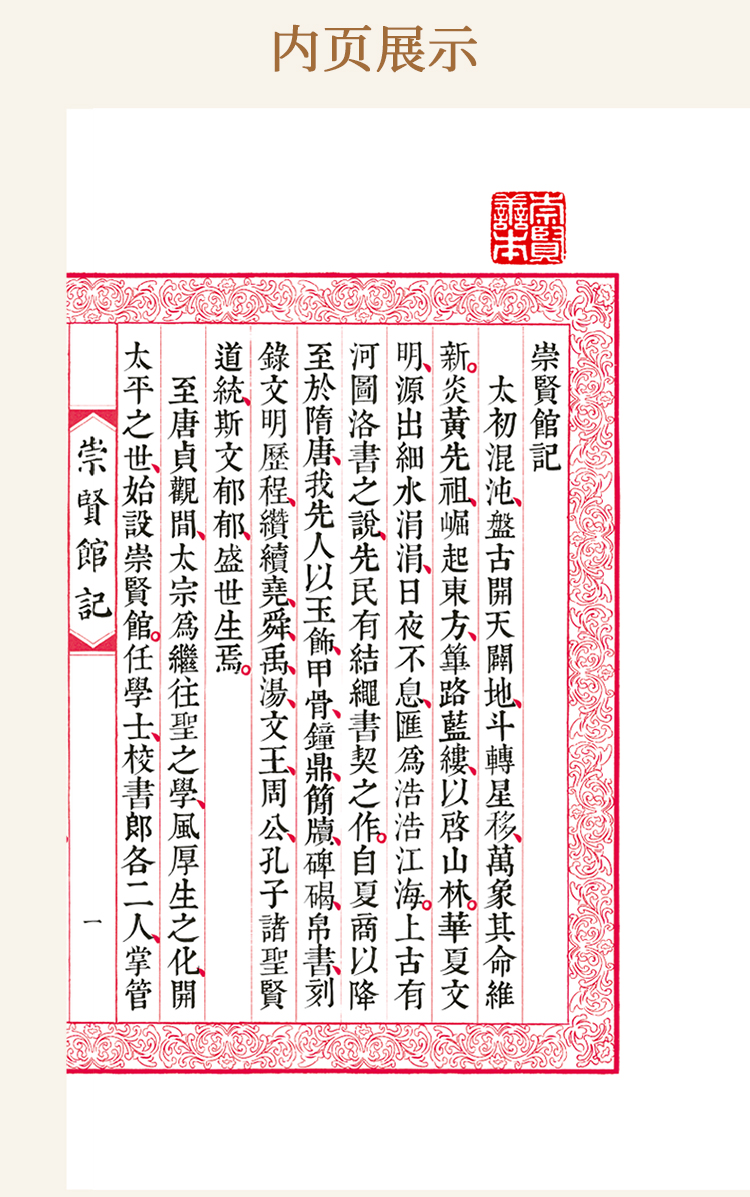 内页展示
崇賢善本
崇賢館記
太初混沌、盤古開天闢地、斗轉星移、萬象其命維
新。炎黃先祖、崛起東方、篳路藍縷、以啓山林。華夏文
明、源出細水涓涓、日夜不息、匯爲浩浩江海。上古有
河圖洛書之說、先民有結繩書契之作。自夏商以降
至於隋唐、我先人以玉飾、甲骨、鐘鼎、簡牘、碑碣、帛書、刻
錄文明歷程、纘續堯、舜、禹、湯、文王、周公、孔子諸聖賢
道統、斯文郁郁、盛世生焉。
至唐貞觀間、太宗爲繼往聖之學、風厚生之化、開
太平之世、始設崇賢館。任學士、校書郎各二人、掌管
崇賢館記
一